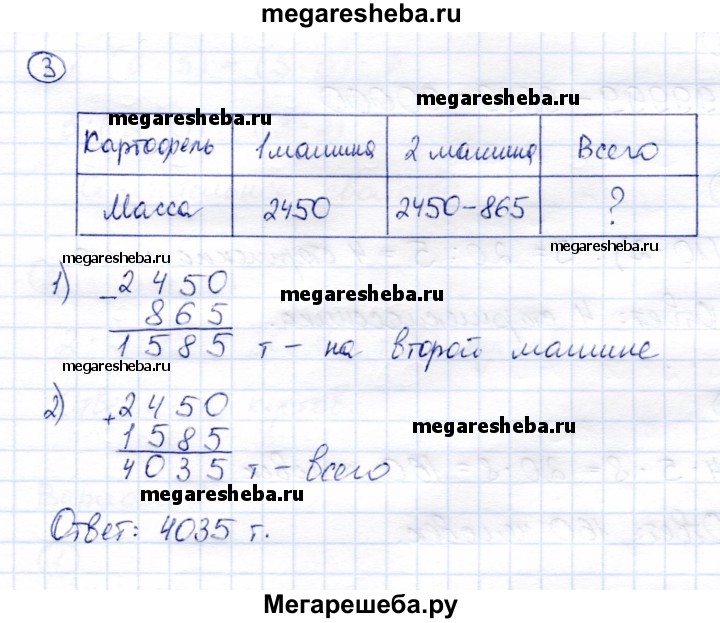 megaresheba.ru
3
megaresheba.ru
megaresheba.ru
Картофель 1 машина 2 машина Всего
Масса 2450 2450-865 ?
megaresheba.ru
megaresheba.ru
1) - 2450
megaresheba.ru
865
1585 т - на второй машине
megaresheba.ru
2) + 2450
megaresheba.ru
1585
4035 т - всего
megaresheba.ru
Ответ: 4035 т.
Мегарешеба.ру